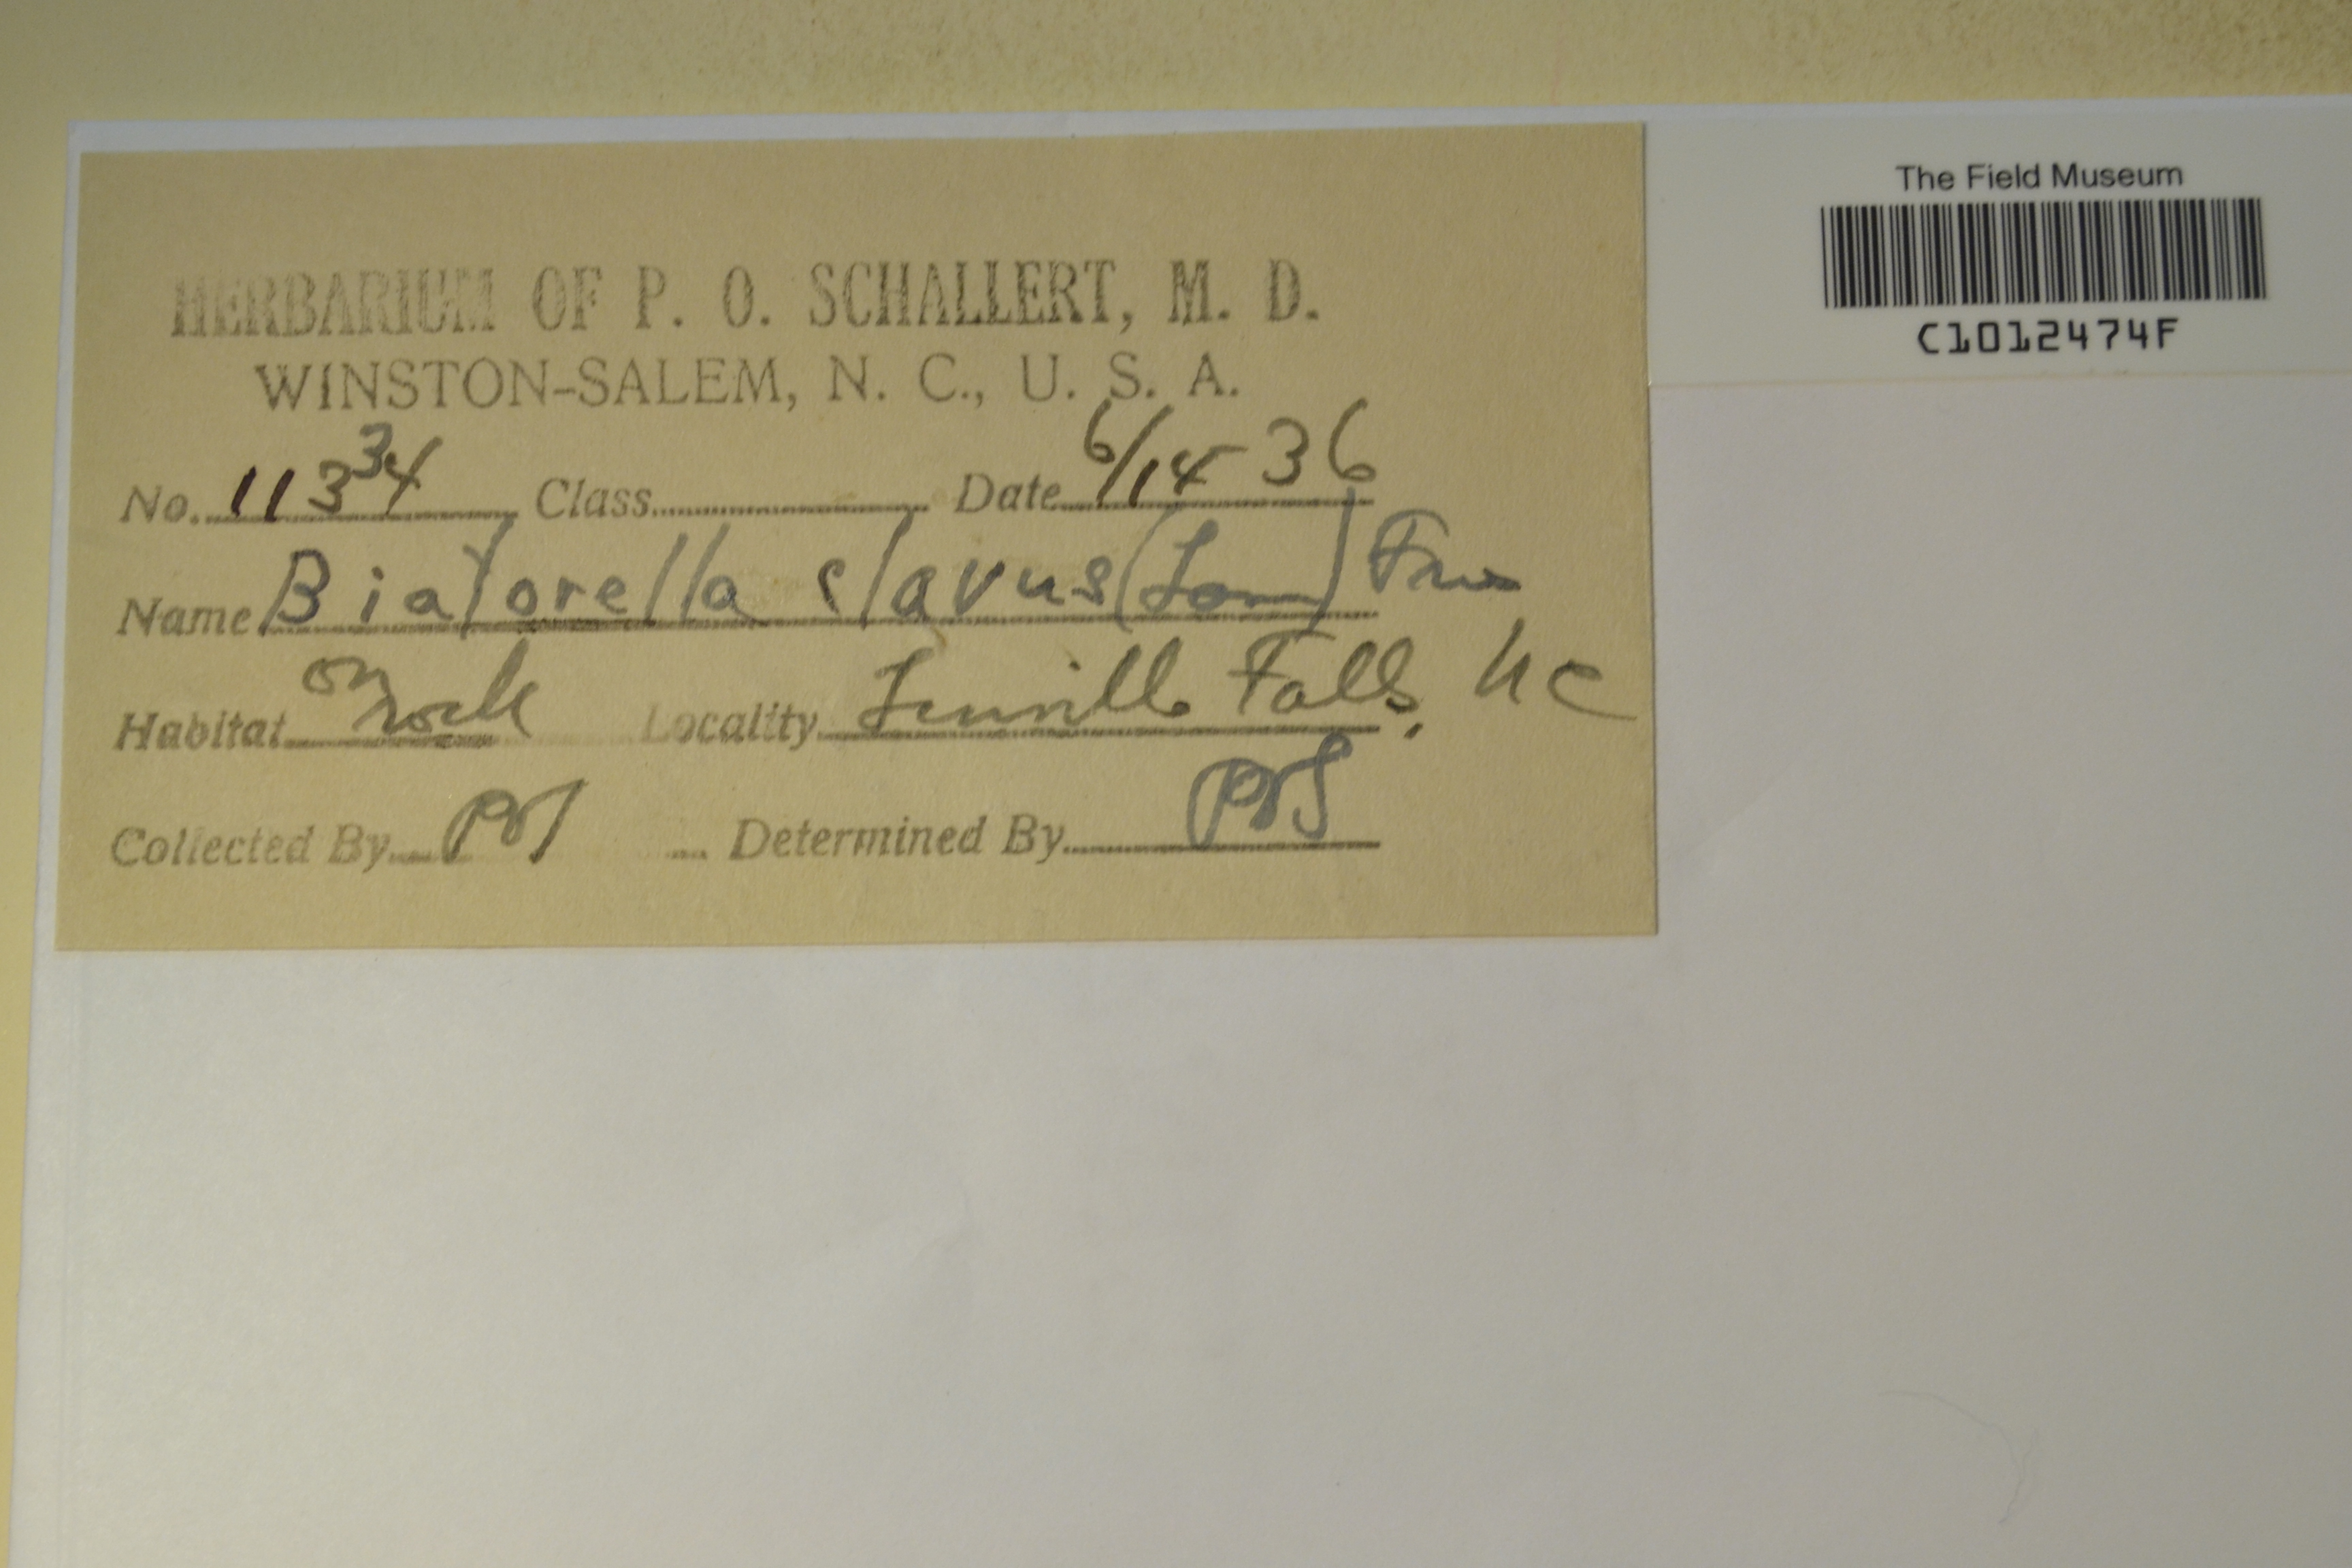 The Field Museum
C1012474F
HERBARIUM OF P. O. SCHALLERT, M. D.
WINSTON-SALEM, N. C., U. S. A.
No. 11334 Class Date 6/14 36
Name Biatorella clavus
Habitat on rock Locality Linville Falls, NC
Collected By POS Determined By POS